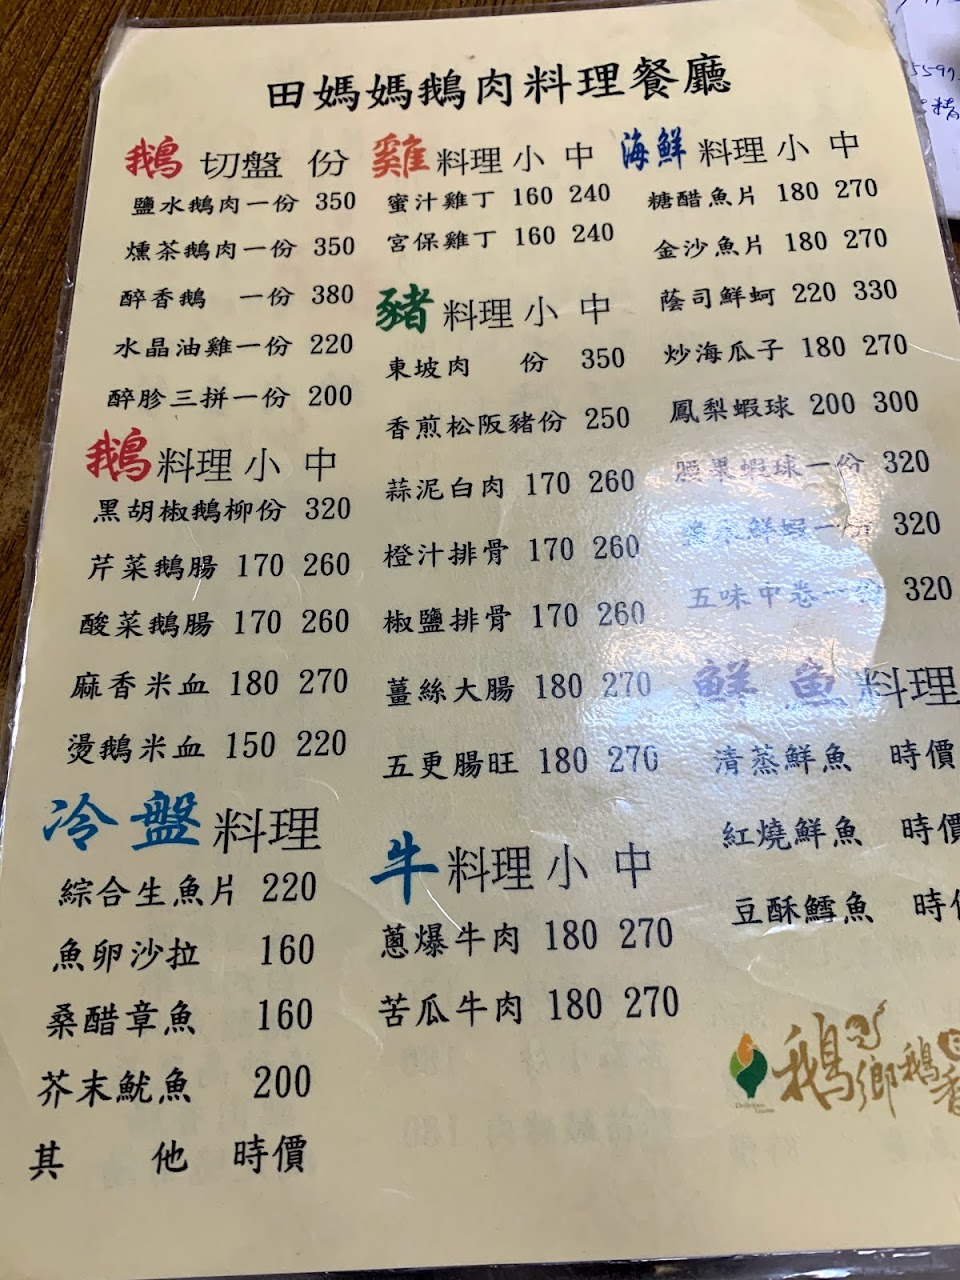 田媽媽鵝肉料理餐廳
鵝 切盤 份
鹽水鵝肉一份 350
燻茶鵝肉一份 350
醉香鵝 一份 380
水晶油雞一份 220
醉胗三拼一份 200
鵝料理 小 中
黑胡椒鵝柳份 320
芹菜鵝腸 170 260
酸菜鵝腸 170 260
麻香米血 180 270
燙鵝米血 150 220
冷盤料理
綜合生魚片 220
魚卵沙拉 160
桑醋章魚 160
芥末魷魚 200
其 他 時價
雞料理 小 中
蜜汁雞丁 160 240
宮保雞丁 160 240
豬料理 小 中
東坡肉 份 350
香煎松阪豬份 250
蒜泥白肉 170 260
橙汁排骨 170 260
椒鹽排骨 170 260
薑絲大腸 180 270
五更腸旺 180 270
牛料理 小 中
蔥爆牛肉 180 270
苦瓜牛肉 180 270
海鮮料理 小 中
糖醋魚片 180 270
金沙魚片 180 270
蔭司鮮蚵 220 330
炒海瓜子 180 270
鳳梨蝦球 200 300
腰果蝦球一份 320
鮮蝦一份 320
五味中卷一份 320
鮮魚料理
清蒸鮮魚 時價
紅燒鮮魚 時價
豆酥鱈魚 時價
鵝鄉鵝香